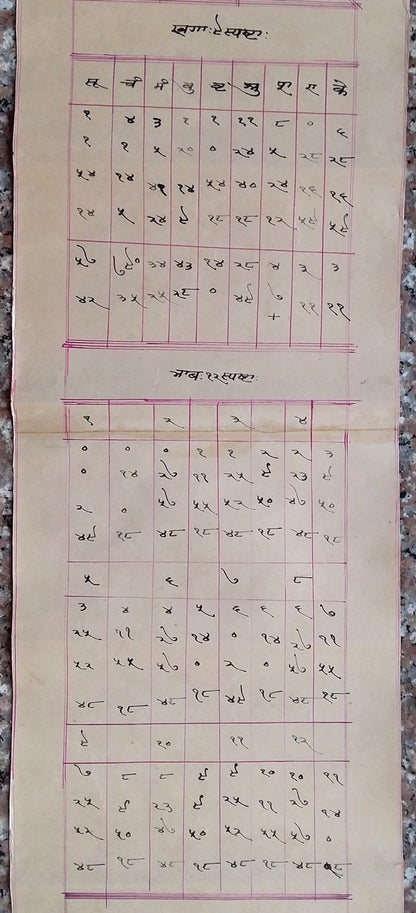 खगाः ९ स्पष्टाः
सू चं मं बु बृ शु श रा के
१ ४ ३ १ १ ११ ८ ० ६
१ १ ५ २० ० २४ ५ २८ २८
५४ १४ ४१ १४ ५४ ४० २४ १६ १६
१४ ५ २४ ९ १८ १८ १२ ५९ ५९
५७ ७९० ३४ ४३ १४ २८ ४ ३ ३
४२ ३५ २५ २८ ० ४९ ७ ११ ११
+
भावाः १२ स्पष्टाः
१ २ ३ ४
० ० ० १ १ २ २ ३
० १४ २७ ११ २५ ९ २३ ९
२ ० ५७ ५५ ५२ ५० ४७ ५०
४९ १८ ४८ १८ ४८ १८ ४८ १८
५ ६ ७ ८
३ ४ ४ ५ ६ ६ ६ ७
२५ ११ २७ १४ ० १४ २७ ११
५२ ५५ ५७ ० २ ० ५७ ५५
४८ १८ ४८ १८ ४९ १८ ४८ १८
९ १० ११ १२
७ ८ ८ ९ ९ १० १० ११
२५ ९ २३ ९ २५ ११ २७ १४
५२ ५० ४७ ५० ५२ ५५ ५७ ०
४८ १८ ४८ १८ ४८ १८ ४८ १८